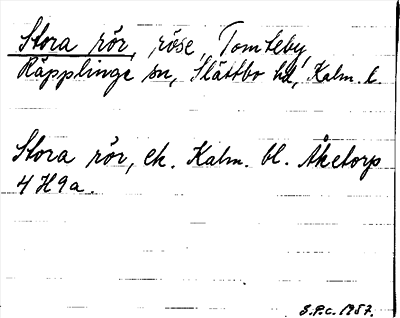 Stora rör, röse, Tomteby,
Räpplinge sn, Slättbo hd, Kalm. l.
Stora rör, ek. Kalm. bl. Åketorp
4 H 9 a.
S.P.C. 1957.